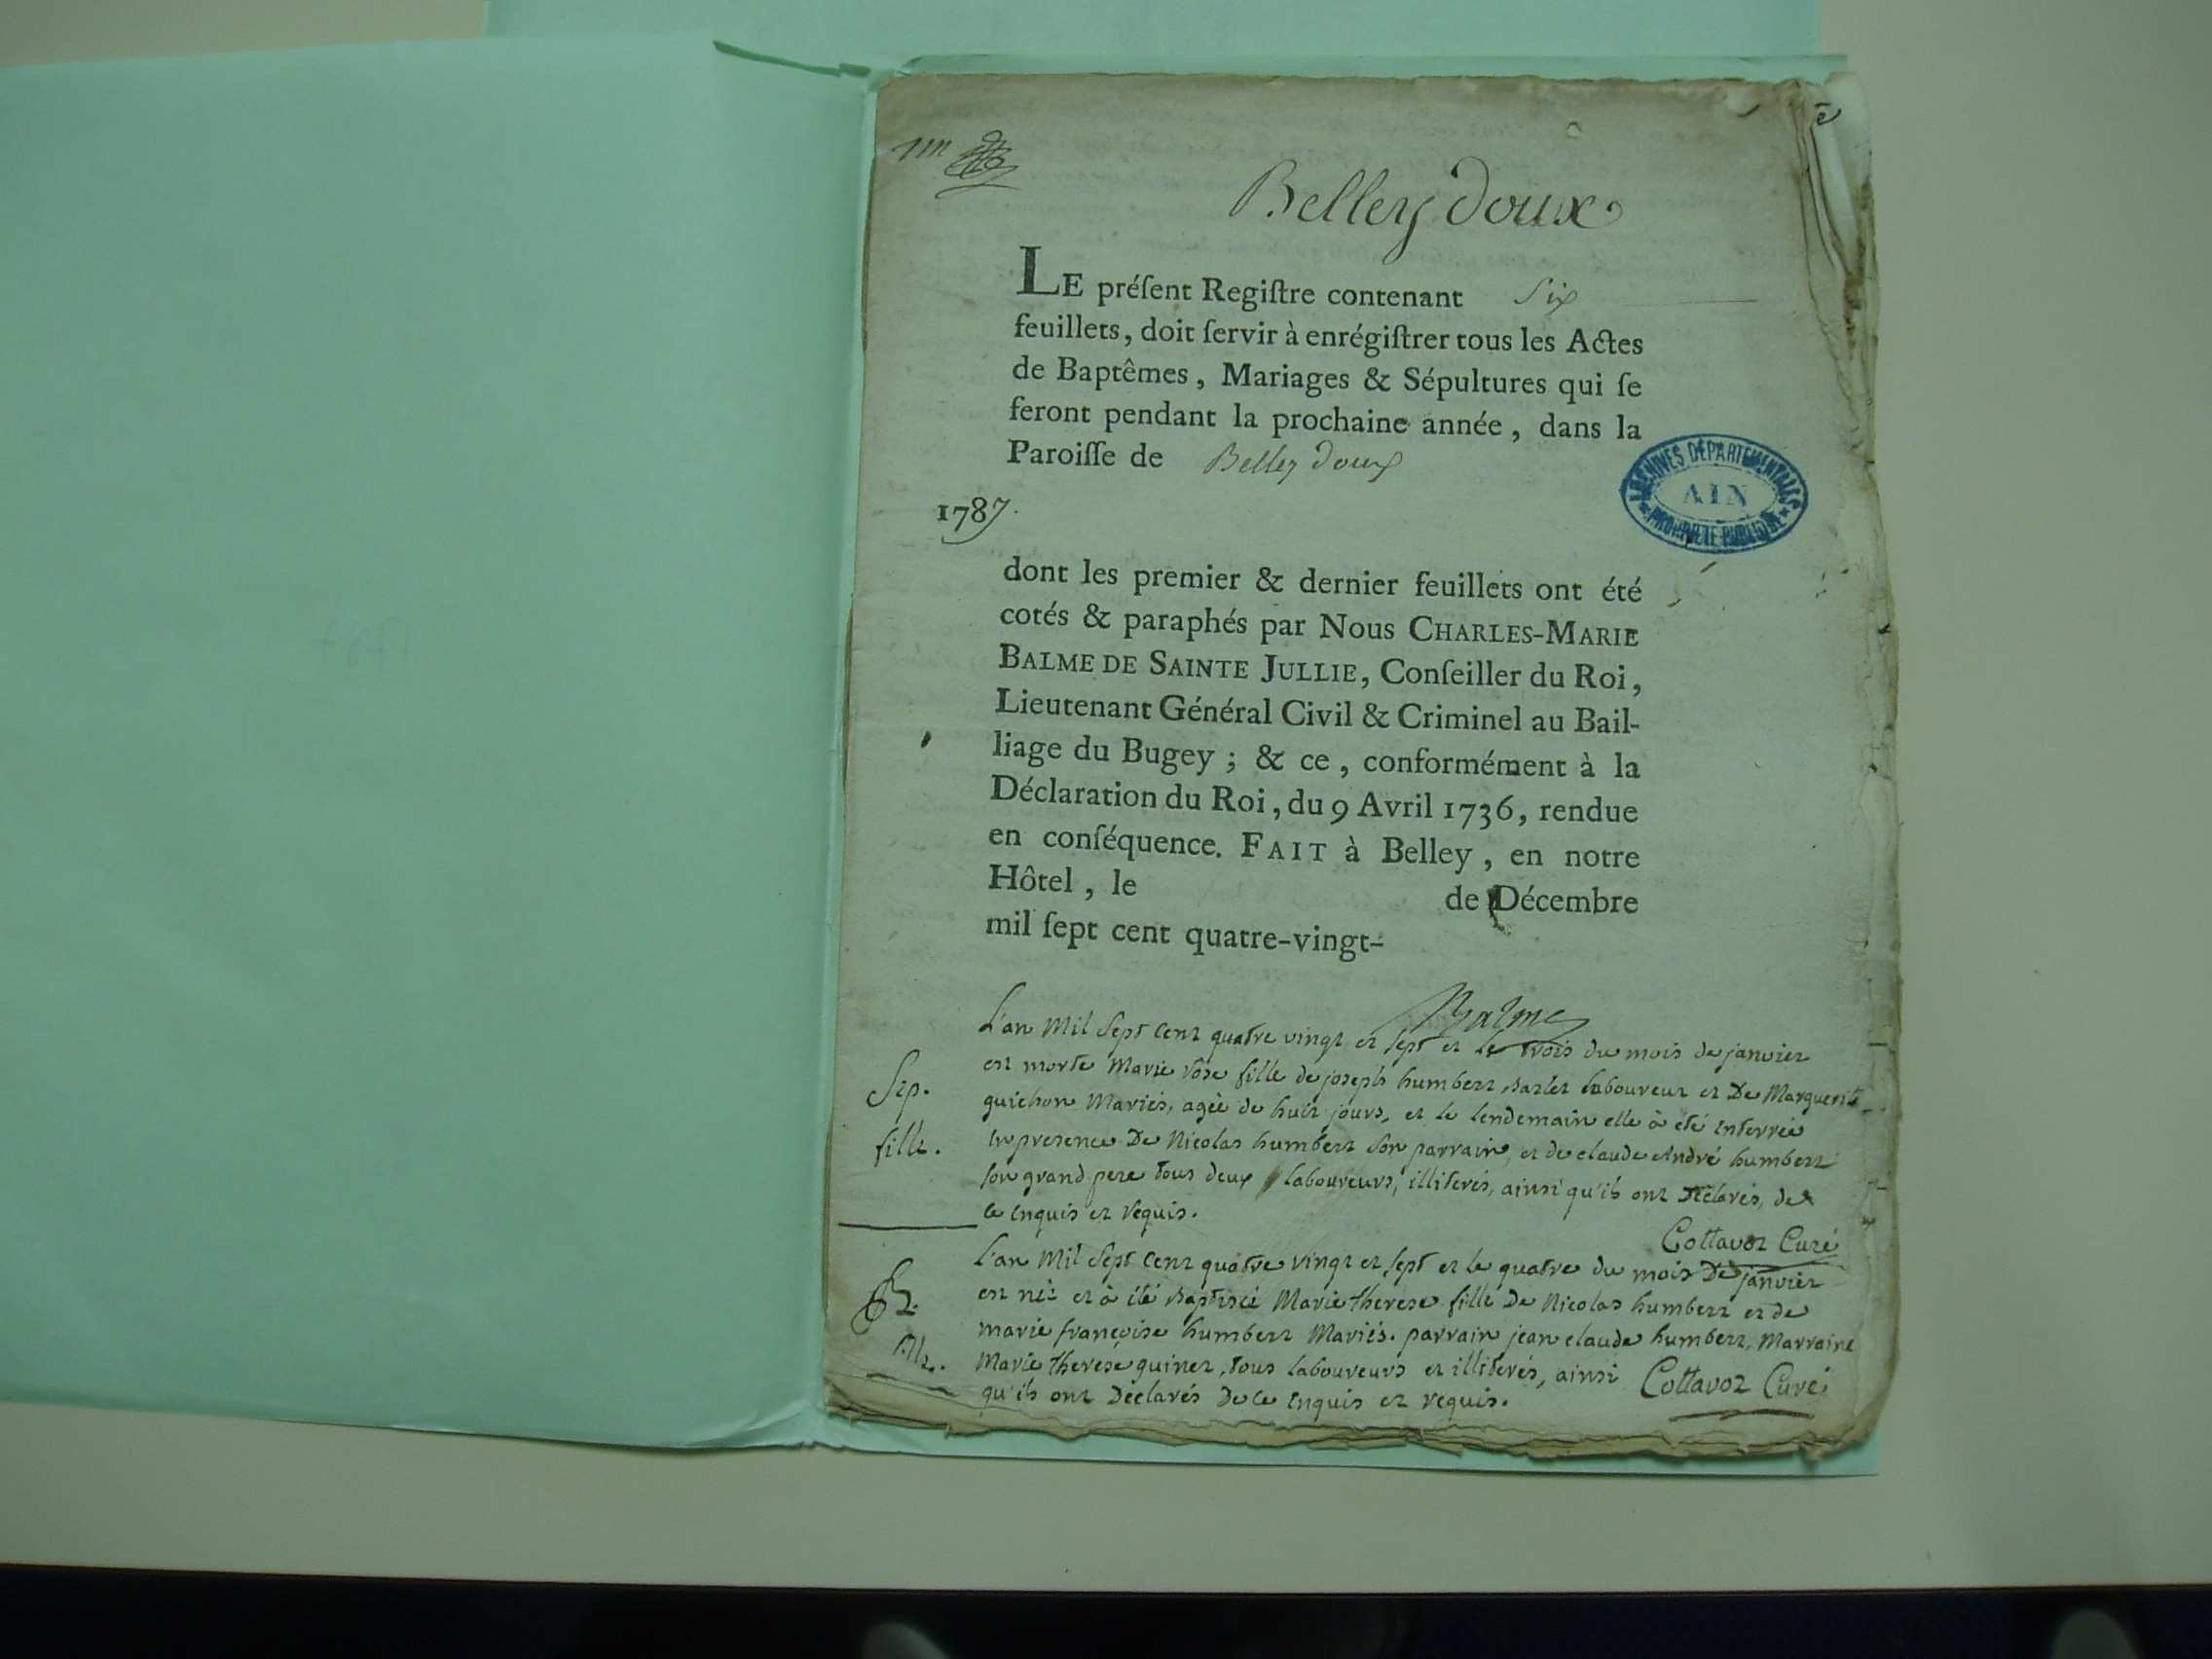 Belleydoux
LE préſent Regiſtre contenant Six
feuillets, doit ſervir à enrégiſtrer tous les Actes
de Baptêmes, Mariages & Sépultures qui ſe
feront pendant la prochaine année, dans la
Paroiſſe de Belleydoux
ARCHIVES DÉPARTEMENTALES
AIN
PROPRIÉTÉ PUBLIQUE
1787.
dont les premier & dernier feuillets ont été
cotés & paraphés par Nous CHARLES-MARIE
BALME DE SAINTE JULLIE, Conſeiller du Roi,
Lieutenant Général Civil & Criminel au Bail-
liage du Bugey ; & ce, conformément à la
Déclaration du Roi, du 9 Avril 1736, rendue
en conſéquence. FAIT à Belley, en notre
Hôtel, le de Décembre
mil ſept cent quatre-vingt-
Balme
L'an Mil Sept Cent quatre vingt et sept et le trois du mois de janvier
est morte Marie rose fille de joseph humbert Barlet laboureur et De Marguerite
Sep. guichon Mariés, agée de huit jours, et le lendemain elle à été enterrée
fille. en presence De Nicolas humbert son parrain, et de claude André humbert
son grand pere tous deux laboureurs, illiterés, ainsi qu'ils ont déclarés, de
ce enquis et requis.
Cottavoz Curé
L'an Mil Sept Cent quatre vingt et sept et le quatre du mois De janvier
est née et à été Baptisée Marie therese fille De Nicolas humbert et de
marie françoise humbert Mariés. parrain jean claude humbert, Marraine
fille. Marie therese guinet, tous laboureurs et illiterés, ainsi
qu'ils ont Déclarés De ce enquis et requis.
Cottavoz Curé